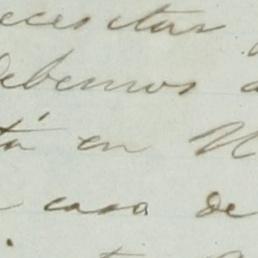 ecesitar
debemos a
tá en N
casa de